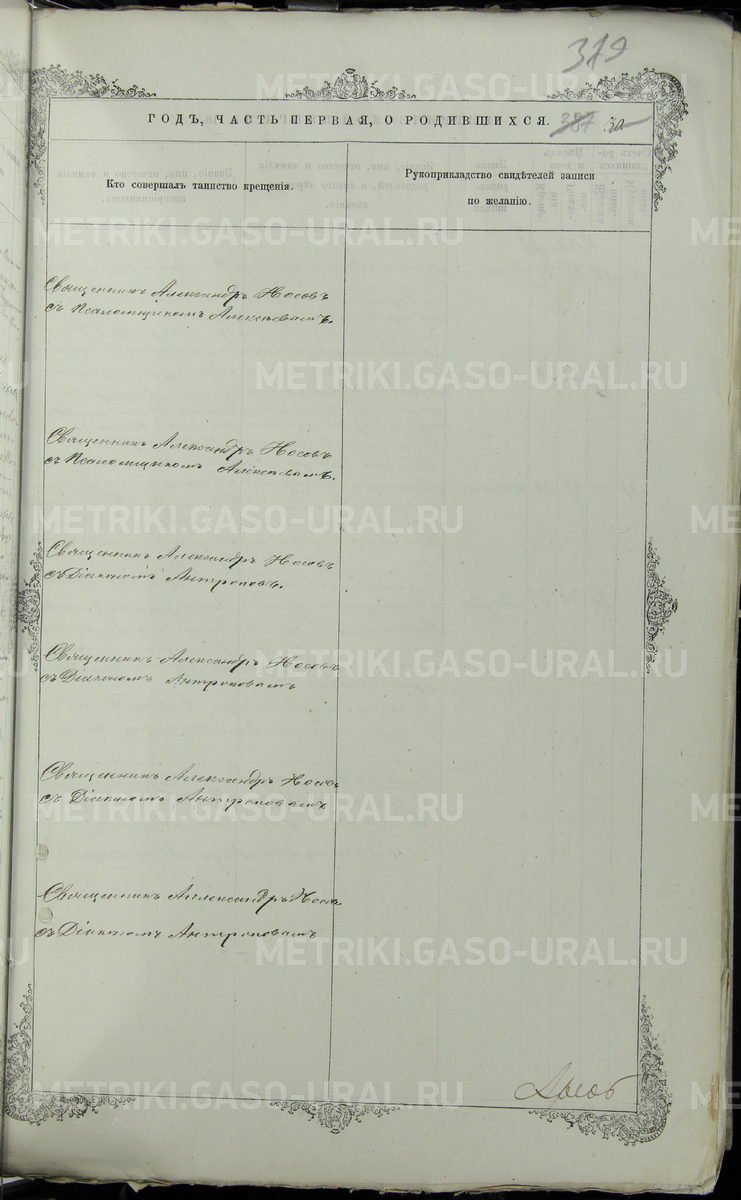 379
ГОДЪ, ЧАСТЬ ПЕРВАЯ, О РОДИВШИХСЯ. 387
Кто совершалъ таинство крещенія.
Рукоприкладство свидѣтелей записи
по желанію.
Священникъ Александръ Носовъ
съ Псаломщикомъ
Священникъ Александръ Носовъ
съ Псаломщикомъ
Священникъ Александръ Носовъ
съ Діакономъ Антроповъ.
Священникъ Александръ Носовъ
съ Діакономъ Антроповымъ
Священникъ Александръ Носовъ
съ Діакономъ Антроповымъ
Священникъ Александръ Носовъ
съ Діакономъ Антроповымъ
METRIKI.GASO-URAL.RU